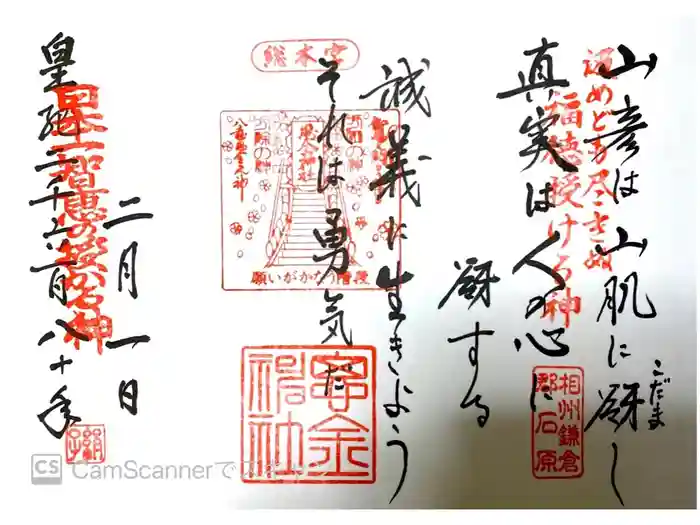 山彦は山肌に谺し
こだま
真実は人の心に
谺する
誠義に生きよう
それは勇気だ
二月一日
皇紀二千六百八十年
汲めども尽きぬ
福徳授ける神
相州鎌倉
郡石原
総本宮
願いがかなう階段
日本一知恵の授かる神
CS CamScannerでスキャン